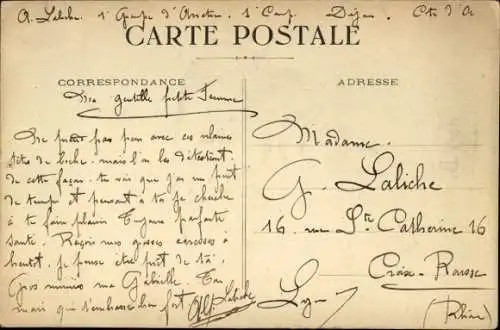 A. Laliche. 1e Groupe d'Aviation. 1e Comp. Dijon. Cote d'Or
CARTE POSTALE
CORRESPONDANCE
ADRESSE
Ma gentille petite Femme
Ne prend pas peur avec ces vilaines
têtes de boche. mais l'on les détestent
de cette façon. tu vois que j'ai un peu
de temps et pensant à toi je cherche
à te faire plaisir Toujours parfaite
santé. Reçois mes grosses caresses à
bientôt. je pense être prêt de toi.
Gros mimis ma Gabrielle. Ton
mari qui t'embrasse bien fort
Alf Laliche
Madame.
G. Laliche
16 rue Ste Catherine 16
Croix-Rousse
Lyon
(Rhône)